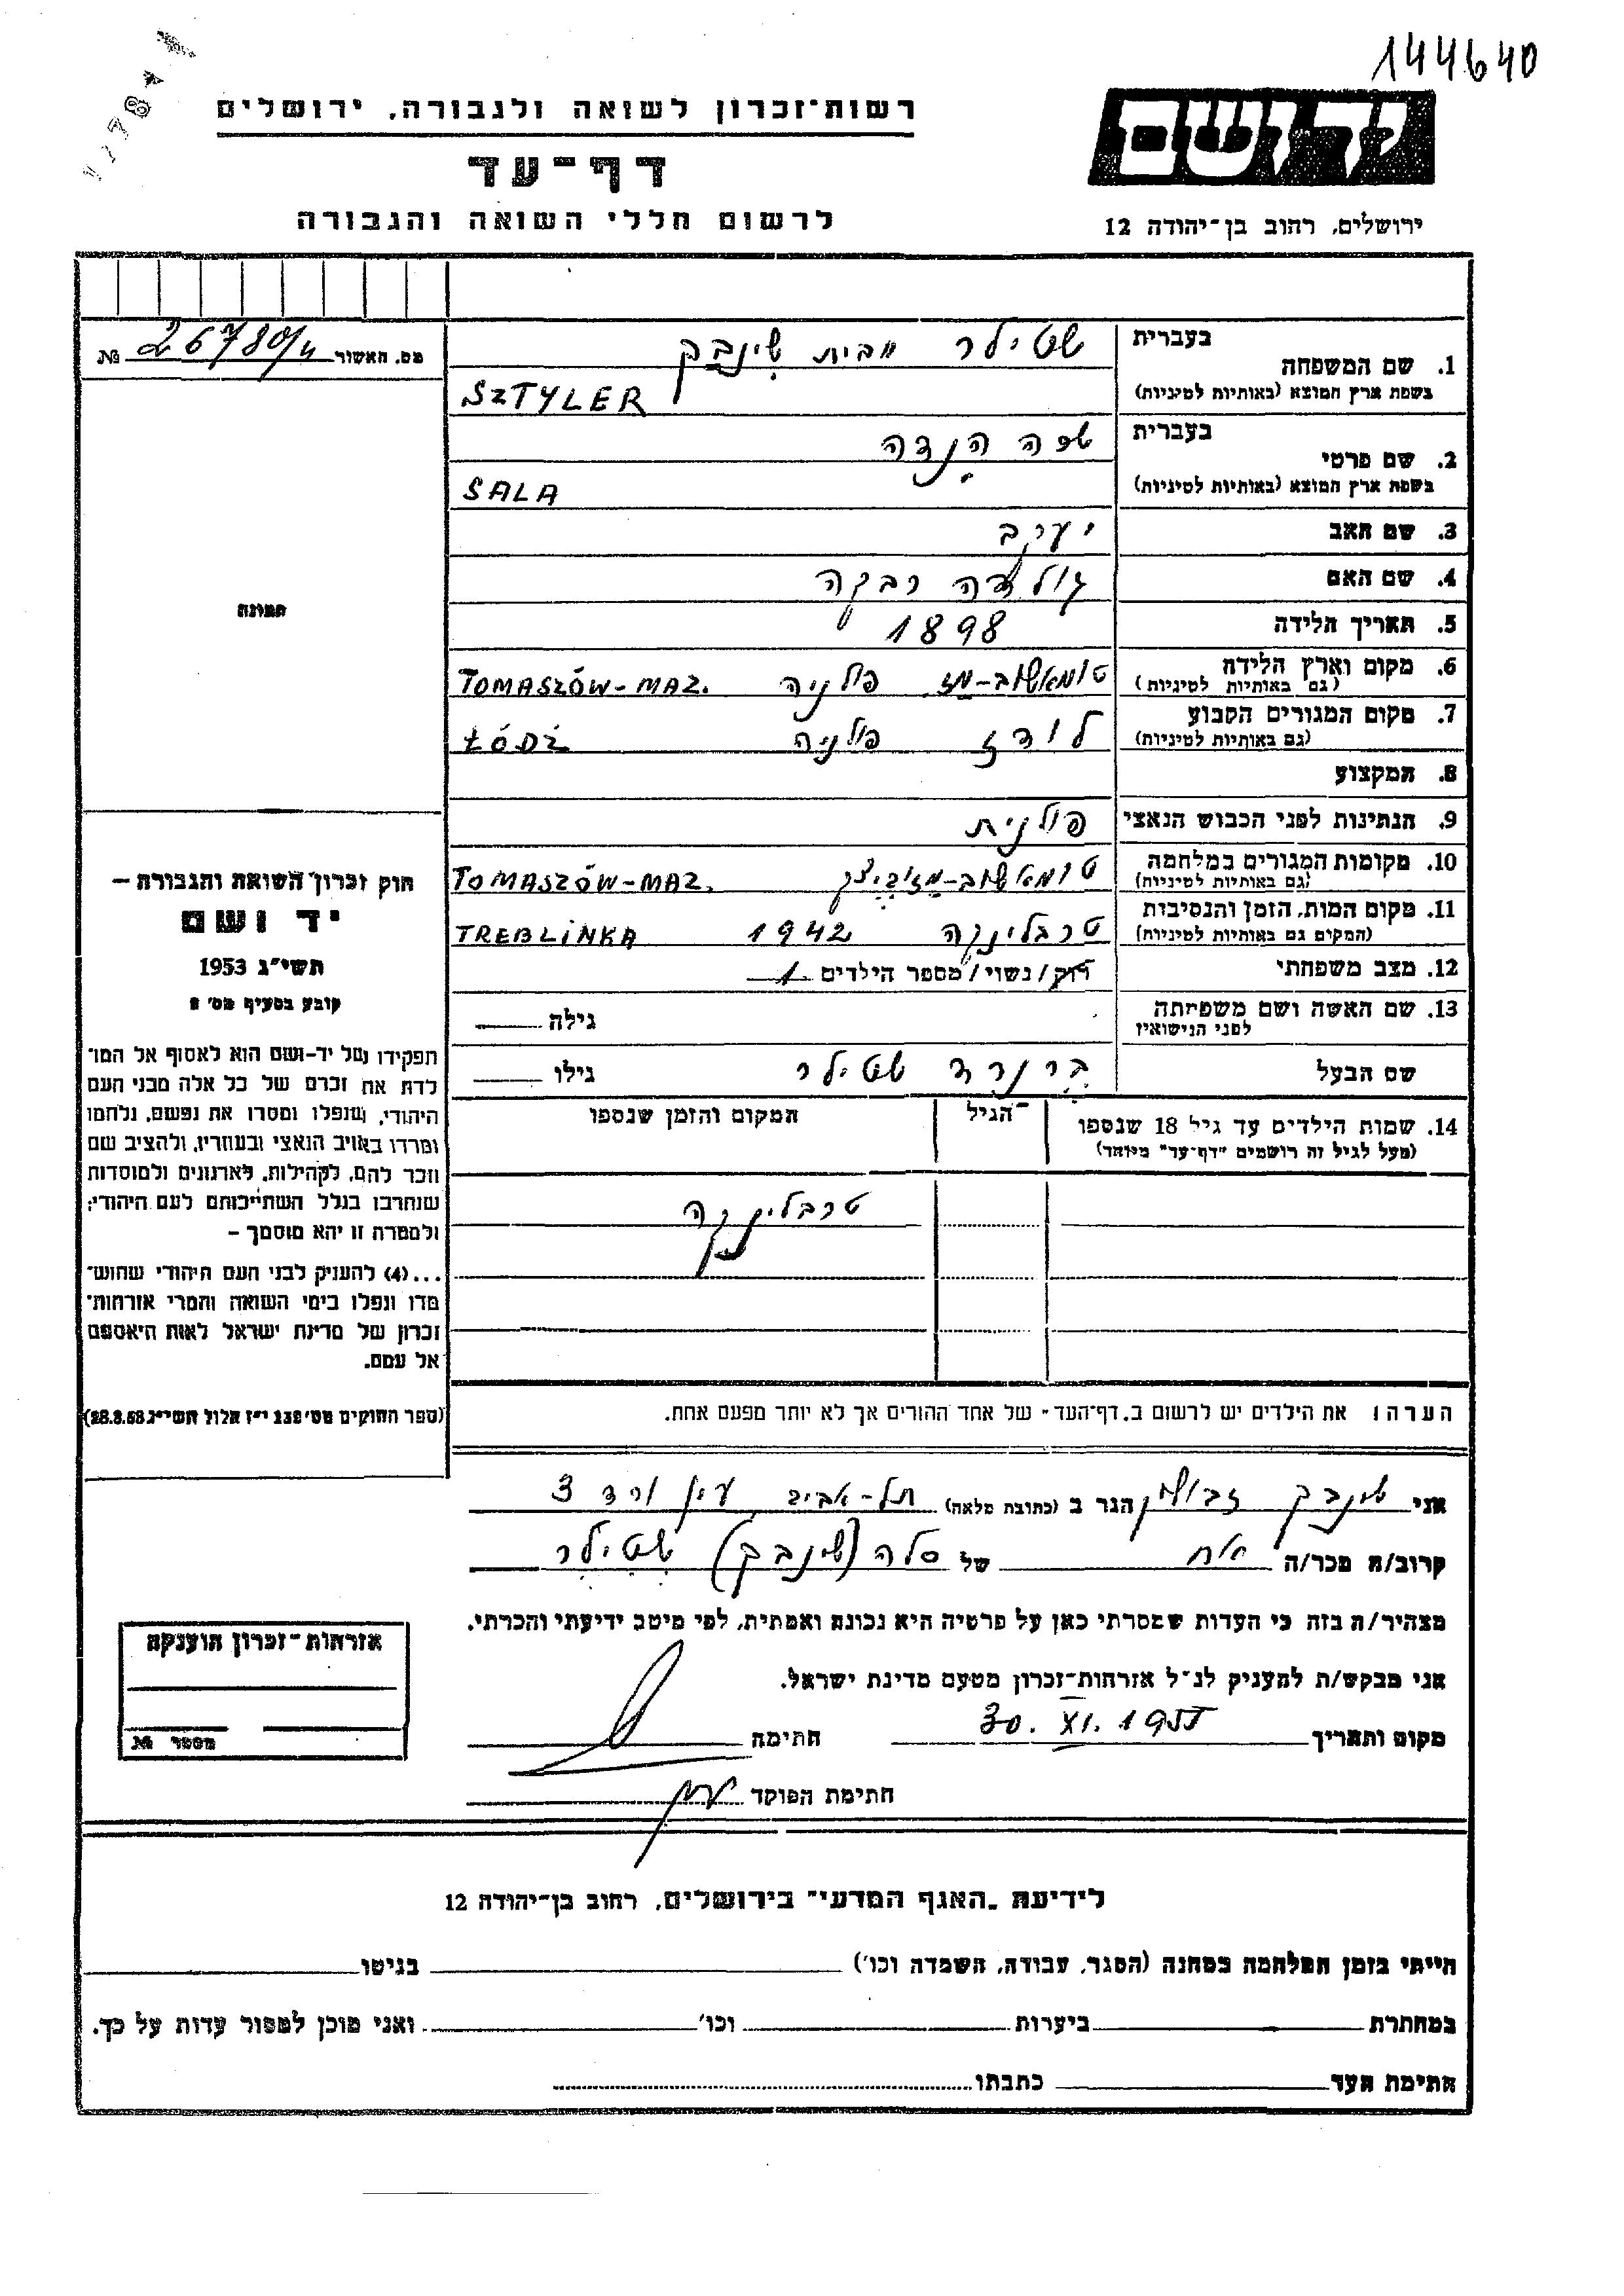 144640
רשות־זכרון לשואה ולגבורה, ירושלים
דף־עד
לרשום חללי השואה והגבורה
יד ושם
ירושלים, רחוב בן־יהודה 12
מס. האשור 26780/4 №
בעברית שטילר מבית שינבק
1. שם המשפחה
בשפת ארץ המוצא (באותיות לטיניות) SZTYLER
בעברית שלה הנדה
2. שם פרטי
בשפת ארץ המוצא (באותיות לטיניות) SALA
3. שם האב יעקב
4. שם האם גולדה רבקה
5. תאריך הלידה 1898
6. מקום וארץ הלידה טומאשוב-מז פולניה TOMASZÓW-MAZ.
(גם באותיות לטיניות)
7. מקום המגורים הקבוע לודז פולניה ŁÓDŹ
(גם באותיות לטיניות)
8. המקצוע
9. הנתינות לפני הכבוש הנאצי פולנית
10. מקומות המגורים במלחמה טומאשוב-מזוביצק TOMASZÓW-MAZ.
(גם באותיות לטיניות)
11. מקום המות, הזמן והנסיבות טרבלינקה 1942 TREBLINKA
(המקום גם באותיות לטיניות)
12. מצב משפחתי רוק/נשוי/מספר הילדים 1
13. שם האשה ושם משפחתה גילה
לפני הנישואין
שם הבעל ברנרד שטילר גילו
14. שמות הילדים עד גיל 18 שנספו הגיל המקום והזמן שנספו
(מעל לגיל זה רושמים "דף־עד" מיוחד)
טרבלינקה
הערה: את הילדים יש לרשום ב„דף־העד" של אחד ההורים אך לא יותר מפעם אחת.
תמונה
חוק זכרון השואה והגבורה –
יד ושם
תשי"ג 1953
קובע בסעיף מס' 2
תפקידו של יד-ושם הוא לאסוף אל המו־
לדת את זכרם של כל אלה מבני העם
היהודי, שנפלו ומסרו את נפשם, נלחמו
ומרדו באויב הנאצי ובעוזריו, ולהציב שם
וזכר להם, לקהילות, לארגונים ולמוסדות
שנחרבו בגלל השתייכותם לעם היהודי;
ולמטרה זו יהא מוסמך –
...(4) להעניק לבני העם היהודי שהוש־
מדו ונפלו בימי השואה והמרי אזרחות־
זכרון של מדינת ישראל לאות היאספם
אל עמם.
(ספר החוקים מס' 132 י"ז אלול תשי"ג 28.8.53)
אני שינבק זבולון הגר ב (כתובת מלאה) תל-אביב עין ורד 3
קרוב/ה מכר/ה אח של סלה (שינבק) שטילר
מצהיר/ה בזה כי העדות שמסרתי כאן על פרטיה היא נכונה ואמתית, לפי מיטב ידיעתי והכרתי.
אני מבקש/ת להעניק לנ"ל אזרחות־זכרון מטעם מדינת ישראל.
מקום ותאריך 30. XI. 1955 חתימה
חתימת הפוקד
אזרחות־זכרון הוענקה
מספר №
לידיעת „האגף המדעי" בירושלים, רחוב בן־יהודה 12
הייתי בזמן המלחמה במחנה (הסגר, עבודה, השמדה וכו') בגיטו
במחתרת ביערות וכו' ואני מוכן למסור עדות על כך.
חתימת העד כתבתו